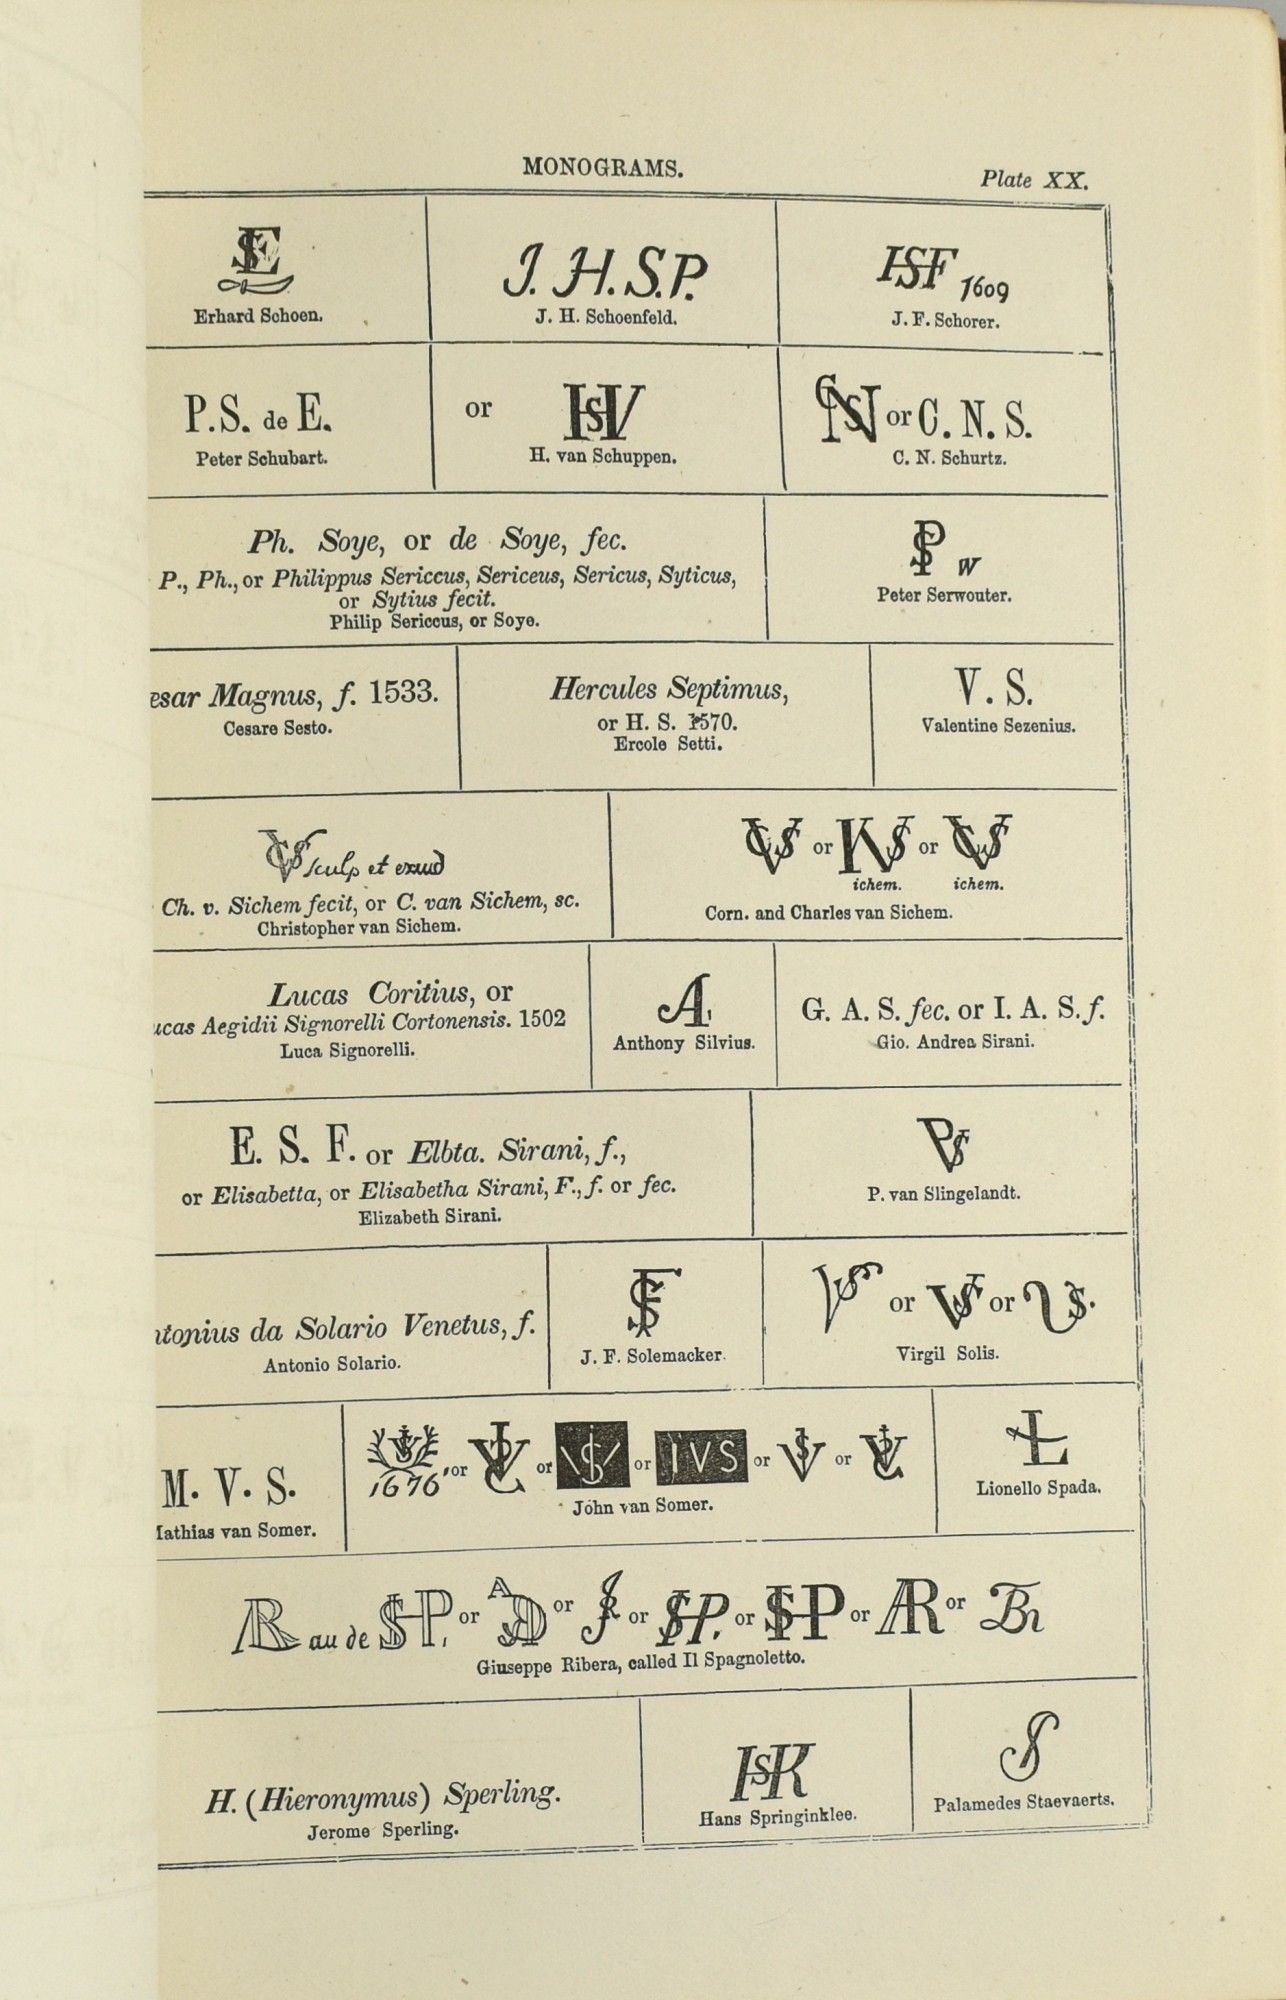 MONOGRAMS.
Plate XX.
Erhard Schoen.
J. H. S. P.
J. H. Schoenfeld.
HSF 1609
J. F. Schorer.
P. S. de E.
Peter Schubart.
or
H. van Schuppen.
or C. N. S.
C. N. Schurtz.
Ph. Soye, or de Soye, fec.
P., Ph., or Philippus Sericcus, Sericeus, Sericus, Syticus,
or Sytius fecit.
Philip Sericcus, or Soye.
W
Peter Serwouter.
Magnus, f. 1533.
Cesare Sesto.
Hercules Septimus,
or H. S. 1570.
Ercole Setti.
V. S.
Valentine Sezenius.
sculp et exuud
Ch. v. Sichem fecit, or C. van Sichem, sc.
Christopher van Sichem.
or or
ichem. ichem.
Corn. and Charles van Sichem.
Lucas Coritius, or
Aegidii Signorelli Cortonensis. 1502
Luca Signorelli.
Anthony Silvius.
G. A. S. fec. or I. A. S. f.
Gio. Andrea Sirani.
E. S. F. or Elbta. Sirani, f.,
or Elisabetta, or Elisabetha Sirani, F., f. or fec.
Elizabeth Sirani.
P. van Slingelandt.
da Solario Venetus, f.
Antonio Solario.
J. F. Solemacker.
or or
Virgil Solis.
M. V. S.
van Somer.
1676 or or or JVS or or
John van Somer.
Lionello Spada.
au de or or or or or or
Giuseppe Ribera, called Il Spagnoletto.
H. (Hieronymus) Sperling.
Jerome Sperling.
HSK
Hans Springinklee.
Palamedes Staevaerts.